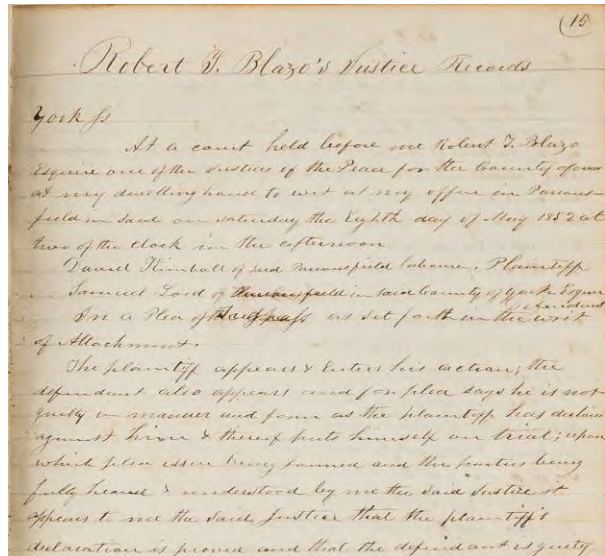 15
Robert T. Blazo's Justice Records
York ss
At a court held before me Robert T. Blazo
Esquire one of the Justices of the Peace for the County of
at my dwelling house to wit at my office in Parsons-
field in said on Saturday the Eighth day of May 1852 at
two of the clock in the afternoon
David Kimball of said Parsonsfield Labourer, Plaintiff
Samuel Lord of field in said County of York Esquire
Defendant
In a Plea of Trespass as set forth in the writ
of Attachment.
The plaintiff appears & Enters his action; the
defendant also appears and for plea says he is not
guilty in manner and form as the plaintiff has declared
against him & thereof puts himself on trial; upon
which plea issue being joined and the parties being
fully heard & understood by me the said Justice it
appears to me the said Justice that the plaintiff's
declaration is proved and that the defendant is guilty